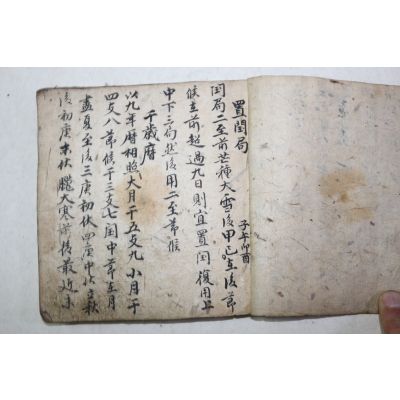 置閏局
閏局二至前芒種大雪後甲己在後節
子午卯酉
候在前超過九日則宜置閏復用上
中下三局然後用二至節候
千歲曆
以九年曆相照大月干五支九小月干
四支八節候干三支七閏中節在月
盡夏至後三庚初伏四庚中伏立秋
後初庚末伏臘大寒後最近未